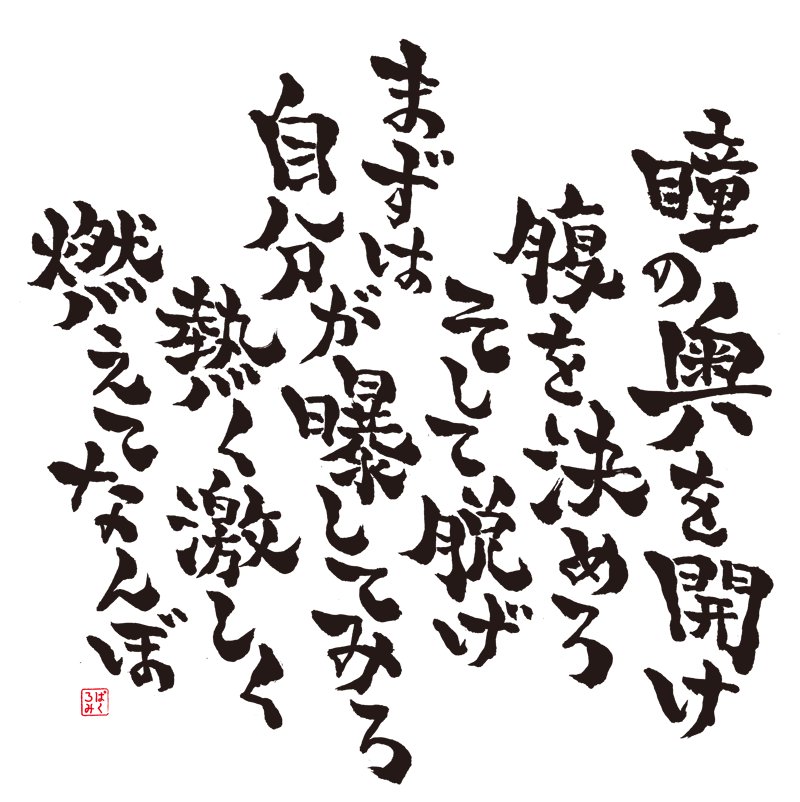 瞳の奥を開け
腹を決めろ
そして脱げ
まずは
自分が曝してみろ
熱く激しく
燃えてなんぼ
ぱくろみ